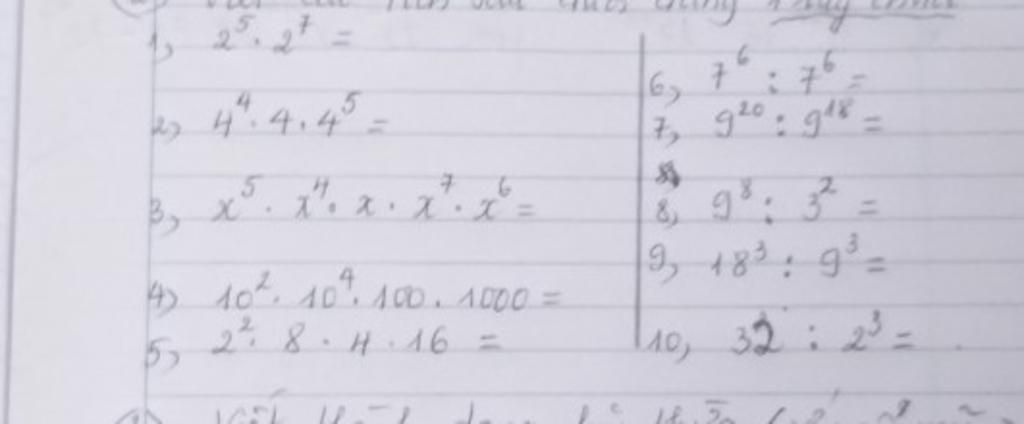 1, 2⁵ . 2⁷ =
2, 4⁴ . 4 . 4⁵ =
3, x⁵ . x⁴ . x . x⁷ . x⁶ =
4) 10² . 10⁴ . 100 . 1000 =
5, 2² . 8 . 4 . 16 =
6, 7⁶ : 7⁶ =
7, 9²⁰ : 9¹⁸ =
8, 9⁸ : 3² =
9, 18³ : 9³ =
10, 32 : 2³ =